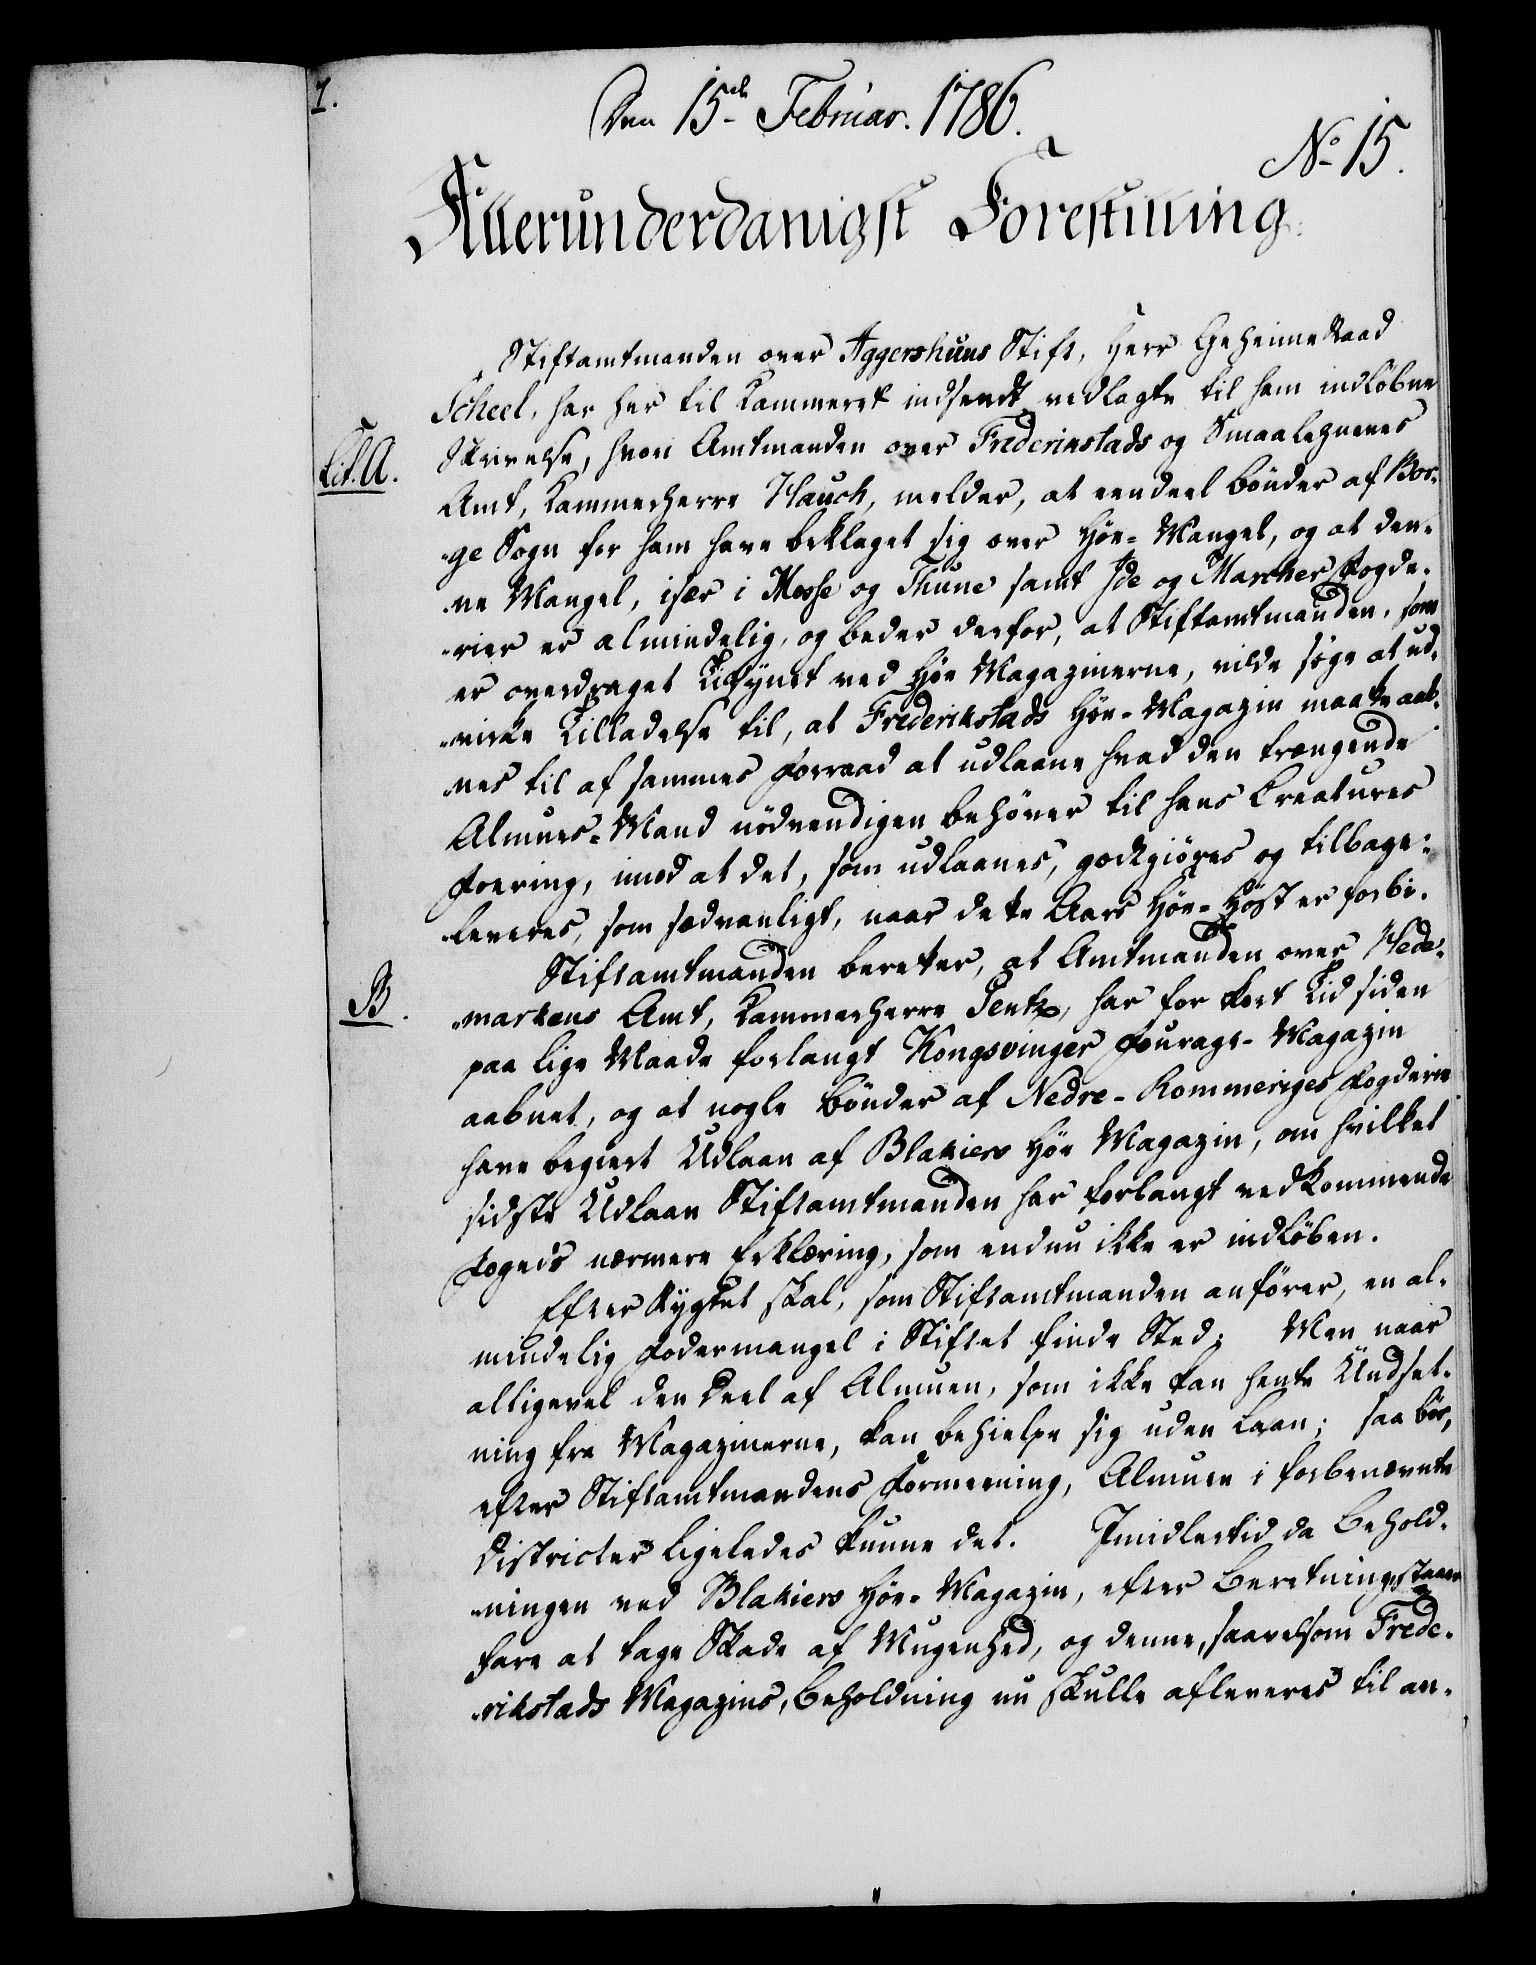 1.
Den 15de Februar. 1786.
No 15.
Allerunderdanigst Forestilling.
Stiftamtmanden over Aggershuus Stift, Herr Geheime Raad
Scheel, har her til Kammeret indsendt vedlagte til ham indløbne
Lit. A.
Skrivelse, hvori Amtmanden over Frederikstads og Smaalehnenes
Amt, Kammerherre Hauch, melder, at eendeel bønder af Bor-
-ge Sogn for ham have beklaget sig over Høe-Mangel, og at den-
-ne Mangel, især i Mosse og Thune samt Ide og Marcher Fogde-
-rier er almindelig, og beder derfor, at Stiftamtmanden, som
er overdraget Tilsynet ved Høe Magazinerne, vilde søge at ud-
-virke Tilladelse til, at Frederikstads Høe-Magazin maatte aab-
-nes til af sammes Forraad at udlaane hvad den trængende
Almues-Mand nødvendigen behøver til hans Creatures
Foering, imod at det, som udlaanes, godtgiøres og tilbage-
-leveres, som sædvanligt, naar dette Aars Høe-Høst er forbi.
Stiftamtmanden beretter, at Amtmanden over Hede-
B.
-markens Amt, Kammerherre Sentz, har for kort Tid siden
paa lige Maade forlangt Kongsvinger Fourage-Magazin
aabnet, og at nogle bønder af Nedre-Rommeriges Fogderie
have begiert Udlaan af Blakiers Høe Magazin, om hvilket
sidste Udlaan Stiftamtmanden har forlangt vedkommende
Fogeds nærmere Erklæring, som endnu ikke er indløben.
Efter Rygtet skal, som Stiftamtmanden anfører, en al-
mindelig Fodermangel i Stiftet finde Sted; Men naar
alligevel den Deel af Almuen, som ikke kan hente Undsæt-
ning fra Magazinerne, kan behielpe sig uden Laan; saa bør,
efter Stiftamtmandens Formeening, Almuen i forbenævnte
Districter ligeledes kunne det. Imidlertid da Behold-
-ningen ved Blakiers Høe-Magazin, efter Beretning, staaer
fare at tage Skade af Mugenhed, og denne, saavelsom Frede-
-rikstads Magazins, Beholdning nu skulle afleveres til an-